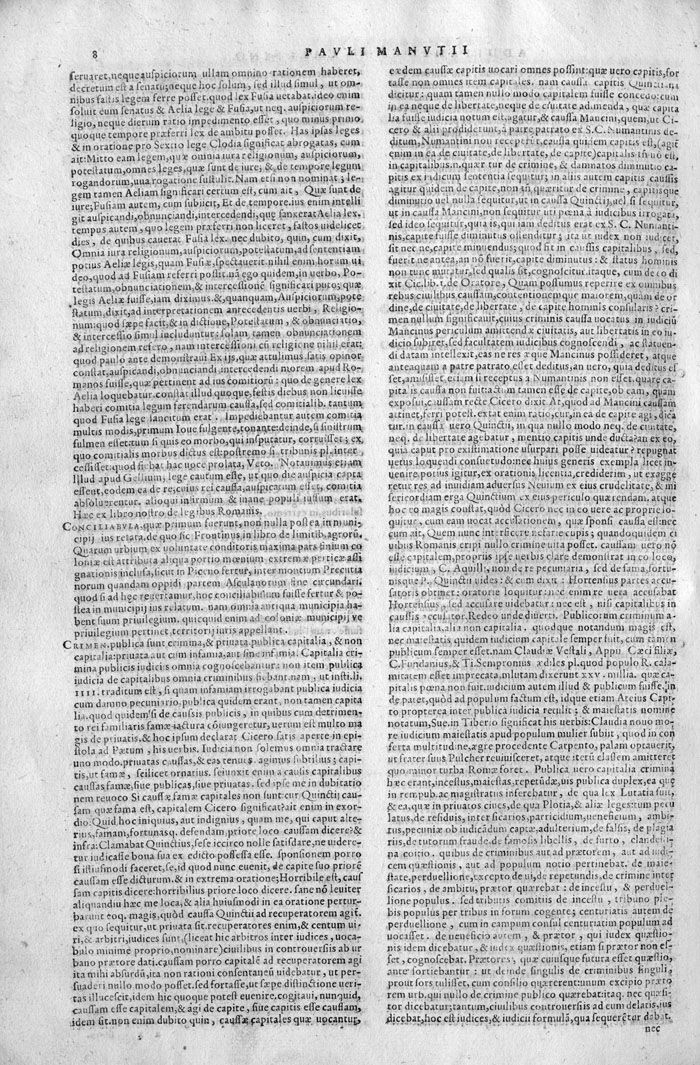 8
PAVLI MANVTII
seruaret, neque auspiciorum ullam omnino rationem haberet,
decretum est a senatu, neque hoc solum, sed illud simul, ut om-
nibus faitis legem ferre posset. quod lex Fusia uetabat. ideo enim
soluit eum senatus & Aelia lege & Fusia, ut neq. auspiciorum re-
ligio, neque dierum ratio impedimento esset, quo minus primo
quoque tempore præferri lex de ambitu posset. Has ipsas leges
& in oratione pro Sextio lege Clodia significat abrogatas, cum
ait: Mitto eam legem, quæ omnia iura religionum, auspiciorum,
potestatum, omnes leges, quæ sunt de iure, & de tempore legum
rogandorum, una rogatione sustulit. Nam etsi non nominat, le-
gem tamen Aeliam significari certum est, cum ait, Quæ sunt de
iure; Fusiam autem, cum subiicit, Et de tempore. ius enim intelli
git auspicandi, obnunciandi, intercedendi, quę sanxerat Aelia lex.
tempus autem, quo legem præferri non liceret, fastos uidelicet
dies, de quibus cauerat Fusia lex. nec dubito, quin, cum dixit,
Omnia iura religionum, auspiciorum, potestatum, ad sententiam
potius Aeliæ legis, quam Fusiæ, spectauerit. nihil enim horum ui
deo, quod ad Fusiam referri possit. nā ego quidem, in uerbo, Po-
testatum, obnunciationem, & intercessionē significari puto; quæ
legis Aeliæ fuisse, iam diximus. &, quanquam, Auspiciorum, pote
statum, dixit, ad interpretationem antecedentis uerbi, Religio-
num: quod sæpe facit, & in dictione, Potestatum, & obnunciatio,
& intercessio simul includuntur: solam tamen obnunciationem
ad religionem refero, nam intercessioni cū religione nihil erat:
quod paulo ante demonstraui. Ex ijs, quæ attulimus, satis opinor
constat, auspicandi, obnunciandi, intercedendi morem apud Ro-
manos fuisse, quæ pertinent ad ius comitiorū: quo de genere lex
Aelia loquebatur. constat illud quoque, festis diebus non licuisse
haberi comitia legum ferendarum causa, sed comitialib. tantum
quod Fusia lege sancitum erat. Impediebantur autem comitia
multis modis, primum Ioue fulgente, tonante: deinde, si sinistrum
fulmen esset: tum si quis eo morbo, qui insputatur, corruisset; ex
quo comitialis morbus dictus est: postremo si tribunus pl. inter
cessisset: quod fiebat hac uoce prolata, Veto. Notauimus etiam
illud apud Gellium, lege cautum esse, ut quo die auspicia capta
essent, eodem ea de re, cuius rei caussa, auspicatum esset, comitia
absoluerentur. alioqui infirmum & inane populi iussum erat.
Hæc ex libro nostro de legibus Romanis.
CONCILIABVLA. quæ primum fuerunt, non nulla postea in muni-
cipij ius relata. de quo sic Frontinus, in libro de limitib. agrorū,
Quarum urbium ex uoluntate conditoris maxima pars finium co
loniæ est attributa, aliqua portio mœnium extremæ perticæ assi
gnationis inclusa. sicut in Piceno fertur, inter montium Precutia
norum quandam oppidi partem Asculanorum fine circundari.
quod si ad hęc reuertamur, hoc conciliabulum fuisse fertur & po
stea in municipij ius relatum. nam omnia antiqua municipia ha-
bent suum priuilegium. quicquid enim ad coloniæ municipijve
priuilegium pertinet, territorij iuris appellant.
CRIMEN. publica sunt crimina, & priuata. publica capitalia, & non
capitalia: priuata aut cum infamia, aut sine infamia. Capitalia cri-
mina publicis iudicijs omnia cognoscebantur: non item publica
iudicia de capitalibus omnia criminibus fiebant. nam, ut insti. li.
IIII. traditum est, si quam infamiam irrogabant publica iudicia
cum damno pecuniario, publica quidem erant, non tamen capita
lia. quod quidem si de causis publicis, in quibus cum detrimen-
to rei familiaris famæ iactura cōiungeretur, uerum est multo ma
gis de priuatis. & hoc ipsum declarat Cicero satis aperte in epi-
stola ad Pætum, his uerbis. Iudicia non solemus omnia tractare
uno modo. priuatas caussas, & eas tenues, agimus subtilius; capi-
tis, ut famæ, scilicet ornatius. seiunxit enim a causis capitalibus
caussas famæ, siue publicas, siue priuatas. sed ipse me in dubitatio
nem reuoco Si caussæ famæ capitales non sunt, cur Quinctij cau-
sam quæ fama est, capitalem Cicero significat? ait enim in exor-
dio: Quid hoc iniquius, aut indignius, quam me, qui caput alte-
rius, famam, fortunasq. defendam, priore loco caussam dicere? &
infra: Clamabat Quinctius, sese iccirco nolle satisdare, ne uidere-
tur iudicasse bona sua ex edicto possessa esse. sponsionem porro
si istiusmodi faceret, se, id quod nunc euenit, de capite suo priore
caussam esse dicturum. & in extrema oratione: Horribile est, cau-
sam capitis dicere: horribilius priore loco dicere. sane nō leuiter
aliquandiu hæc me loca, & alia huiusmodi in ea oratione pertur-
barunt eoq. magis, quòd caussa Quinctii ad recuperatorem agit.
ex quo sequitur, ut priuata sit. recuperatores enim, & centum ui-
ri, & arbitri, iudices sunt, (liceat hic arbitros inter iudices, uoca-
bulo minime proprio, nominare) ciuilibus in controuersiis ab ur
bano prætore dati. caussam porro capitalē ad recuperatorem agi
ita mihi absurdū, ita non rationi consentaneū uidebatur, ut per-
suaderi nullo modo posset. sed fortasse, ut sæpe distinctione ueri-
tas illucescit, idem hic quoque potest euenire. cogitaui, nunquid,
caussam esse capitalem, & agi de capite, siue capitis esse caussam,
idem sit. non enim dubito quin, caussæ capitales quæ uocantur,
eædem caussæ capitis uocari omnes possint: quæ uero capitis, for
tasse non omnes item capitales. nam caussa capitis Quinctii
dicitur: quam tamen nullo modo capitalem fuisse concedo: cum
in ea neque de libertate, neque de ciuitate adimenda, quæ capita
lia fuisse iudicia notum est, agatur, & caussa Mancini, quem, ut Ci-
cero & alii prodiderunt, à patre patrato ex S. C. Numantinis de-
ditum, Numantini non receperūt. caussa quidem capitis est, (agit
enim in ea de ciuitate, de libertate, de capite) capitalis tn̄ nō est,
in capitalibus. n. quæritur de crimine, & damnatos diminutio ca-
pitis ex iudicum sententia sequitur, in aliis autem capitis caussis
agitur quidem de capite, non tn̄ quæritur de crimine, capitisque
diminutio uel nulla sequitur, ut in caussa Quinctij, uel si sequitur,
ut in caussa Mancini, non sequitur uti pœna à iudicibus irrogata,
sed ideo sequitur, quia is, qui iam deditus erat ex S. C. Numanti-
nis, capite fuisse diminutus ostenditur; ita ut iudex non iudicet,
sit nec ne, capite minuendus; quod fit in caussis capitalibus, sed,
fuerit ne antea, an nō fuerit, capite diminutus: & status hominis
non tunc mutatur, sed qualis sit, cognoscitur. itaque, cum de eo di
xit Cic. lib. I. de Oratore, Quam possumus reperire ex omnibus
rebus ciuilibus caussam, contentionemque maiorem, quam de or
dine, de ciuitate, de libertate, de capite hominis consularis? cri-
men nullum significauit, cuius criminis caussa uocatus in iudiciū
Mancinus periculum amittendæ ciuitatis, aut libertatis in eo iu-
dicio subiret, sed facultatem iudicibus cognoscendi, ac statuen-
di datam intellexit, eas ne res æque Mancinus possideret, atque
anteaquam a patre patrato esset deditus, an uero, quia deditus es
set, amisisset. etiam si receptus a Numantinis non esset. quare ca-
pitis ea caussa non fuit tantum tamen esse de capite, ob eam, quam
exposui, caussam recte Cicero dixit At, quod ad Mancini caussam
attinet, ferri potest. extat enim ratio, cur, in ea de capite agi, dica
tur. in caussa uero Quinctij, in qua nullo modo neq. de ciuitate,
neq. de libertate agebatur, mentio capitis unde ducta? an ex eo,
quia caput pro existimatione usurpari posse uideatur? repugnat
uetus loquendi consuetudo. nec huius generis exempla licet in-
uenire. potius igitur, ex oratorum licentia, crediderim, ut exagge
raret res ad inuidiam aduersus Neuium ex eius crudelitate, & mi
sericordiam erga Quinctium ex eius periculo quærendam. atque
hoc eo magis constat, quòd Cicero nec in eo uere ac proprie lo-
quitur, cum eam uocat accusationem, quæ sponsi caussa est: nec
cum ait, Quem nunc interficere nefarie cupis; quandoquidem ci
uibus Romanis eripi nullo crimine uita posset. caussam uero nō
esse capitalem, propriis ipse uerbis clare demonstrat in eo loco,
iudicium, C. Aquilli, non de re pecuniaria, sed de fama, fortu-
nisque P. Quinctij uides: & cum dixit: Hortensius partes accu-
satoris obtinet: oratorie loquitur: nec enim re uera accusabat
Hortensius, sed accusare uidebatur: nec est, nisi capitalibus in
caussis accusator. Redeo unde diuerti. Publicorum criminum a-
lia capitalia, alia non capitalia. quodque notandum magis est,
nec maiestatis quidem iudicium capitale semper fuit, cum tamen
publicum semper esset. nam Claudiæ Vestali, Appii Cæci filiæ,
C. Fundanius, & Ti. Sempronius ædiles pl. quod populo R. cala-
mitatem esset imprecata. mulctam dixerunt xxv. millia. quæ ca-
pitalis pœna non fuit. iudicium autem illud & publicum fuisse, in
de patet, quòd ad populum factum est, idque etiam Ateius Capi-
to propterea inter publica iudicia retulit; & maiestatis nomine
notatum, Sue. in Tiberio significat his uerbis: Claudia nouo mo-
re iudicium maiestatis apud populum mulier subiit, quod in con
ferta multitudine, ægre procedente Carpento, palam optauerit,
ut frater suus Pulcher reuiuisceret, atque iterū classem amitteret
quo minor turba Romæ foret. Publica uero capitalia crimina
hæc erant, incestus, maiestas, repetūdæ, uis publica duplex, ea quę
in remp. ac magistratus inferebatur, de qua lex Lutatia fuit,
& ea, quæ in priuatos ciues, de qua Plotia, & aliæ leges: tum pecu
latus, de residuis, inter sicarios, parricidium, ueneficium, ambi-
tus, pecuniæ ob iudicādum captæ, adulterium, de falsis, de plagia
riis, de tutorum fraude, de famosis libellis, de furto, clandesti-
na coitio. quibus de criminibus aut ad prætorem, aut ad iudi-
cem quæstionis, aut ad populum notio pertinebat. de maie-
state, perduellione, excepto de ui, de repetundis, de crimine inter
sicarios, de ambitu, prætor quærebat: de incestu, & perduel-
lione populus. sed tributis comitiis de incestu, tribuno ple-
bis populus per tribus in forum cogente; centuriatis autem de
perduellione, cum in campum consul centuriatim populum ad
uocasset. de ueneficio autem, & prætor, qui iudex quæstio-
nis idem dicebatur, & iudex quæstionis, etiam si prætor non es-
set, cognoscebat. Prætores, quæ cuiusque futura esset quæstio,
ante sortiebantur: ut deinde singulis de criminibus singuli,
prout sors tulisset, cum consilio quærerent: unum excipio præto
rem urb. qui nullo de crimine publico quærebat: itaq. nec quæsi-
tor dicebatur: tantum, ciuilibus controuersiis ad eum delatis, ius
dicebat, hoc est iudices, & iudicii formulā, qua sequerētur dabat.
nec